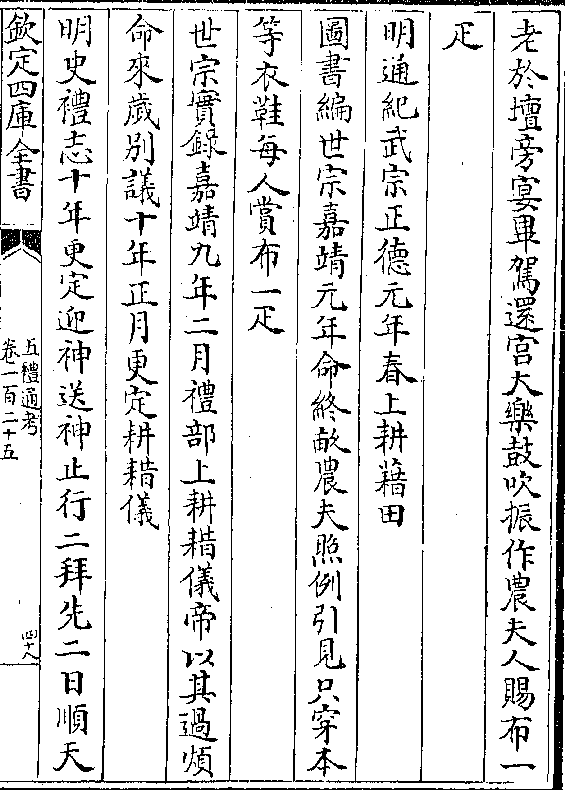 老於壇旁宴畢駕還宮大樂鼓吹振作農夫人賜布一
疋
明通紀武宗正德元年春上耕藉田
圖書編世宗嘉靖元年命終畝農夫照例引見只穿本
等衣鞋每人賞布一疋
世宗實錄嘉靖九年二月禮部上耕耤儀帝以其過煩
命來歲別議十年正月更定耕耤儀
明史禮志十年更定迎神送神止行二拜先二日順天
欽定四庫全書
五禮通考
卷一百二十五
四十八